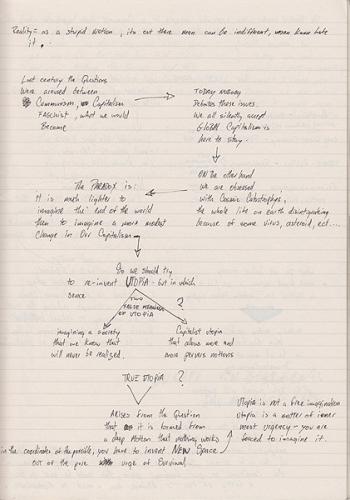 Reality = as a stupid motion, its out there men can be indifferent, women know hate
it.
Last century the Questions
Were around between
Communism, Capitalism
FASCISIST, what we would
Become
TODAY NOBODY
Debates these issues.
We all silently accept
GLOBAL Capitalism is
here to stay.
ON the other hand
we are obsessed
with Cosmic Catastrophys,
the whole life on earth disintegrating
because of some virus, asteroid, ect...
The PARADOX is:
it is much lighter to
imagine the end of the world
then to imagine a more modest
change in Our Capitalism
So we should try
to re-invent UTOPIA - but in which
sence
TWO
FALSE MEANINGS
OF UTOPIA
?
imagining a society
that we know that
will never be realised.
Capitalist utopia
that allows new and
more pervers notions
TRUE UTOPIA ?
Arises from the Question
that it is formed from
a deep Notion that nothing works
in the coordinates of the possible, you have to invent NEW Space
out of the pure urge of Survival.
Utopia is not a free imagination
utopia is a matter of inner
most urgency - you are
forced to imagine it.